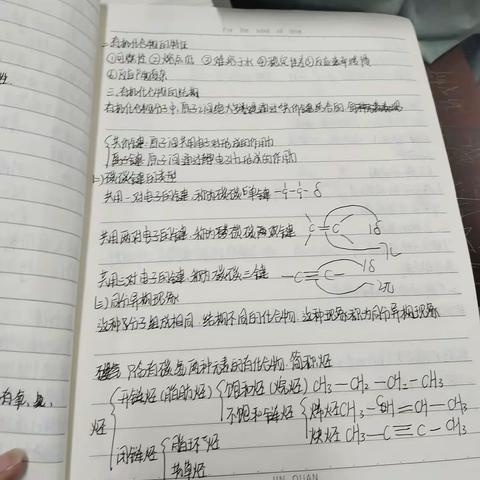 For the wind of time
二.有机化合物的特征
①可燃性 ②熔点低 ③难溶于水 ④稳定性差 ⑤反应速率缓慢
⑥反应产物复杂
三.有机化合物的结构
有机化合物分子中,原子间绝大多数是通过共价键结合的
共价键:原子间共用电子对形成的作用力
原子间通过 电子对形成的作用力
(二)碳碳键的类型
共用一对电子的键,称为碳碳单键 -C-C- δ
共用两对电子的键,称为碳碳双键 C=C 1δ
1π
共用三对电子的键,称为碳碳三键 -C≡C- 1δ
2π
(三)同分异构现象
这种分子组成相同,结构不同的化合物,这种现象称为同分异构现象
只含有碳氢两种元素的有机化合物,简称烃
烃
开链烃(脂肪烃)
饱和烃(烷烃) CH₃-CH₂-CH₂-CH₃
不饱和链烃
烯烃 CH₃-CH=CH-CH₃
炔烃 CH₃-C≡C-CH₃
闭链烃
脂环烃
芳香烃
JIN QUAN